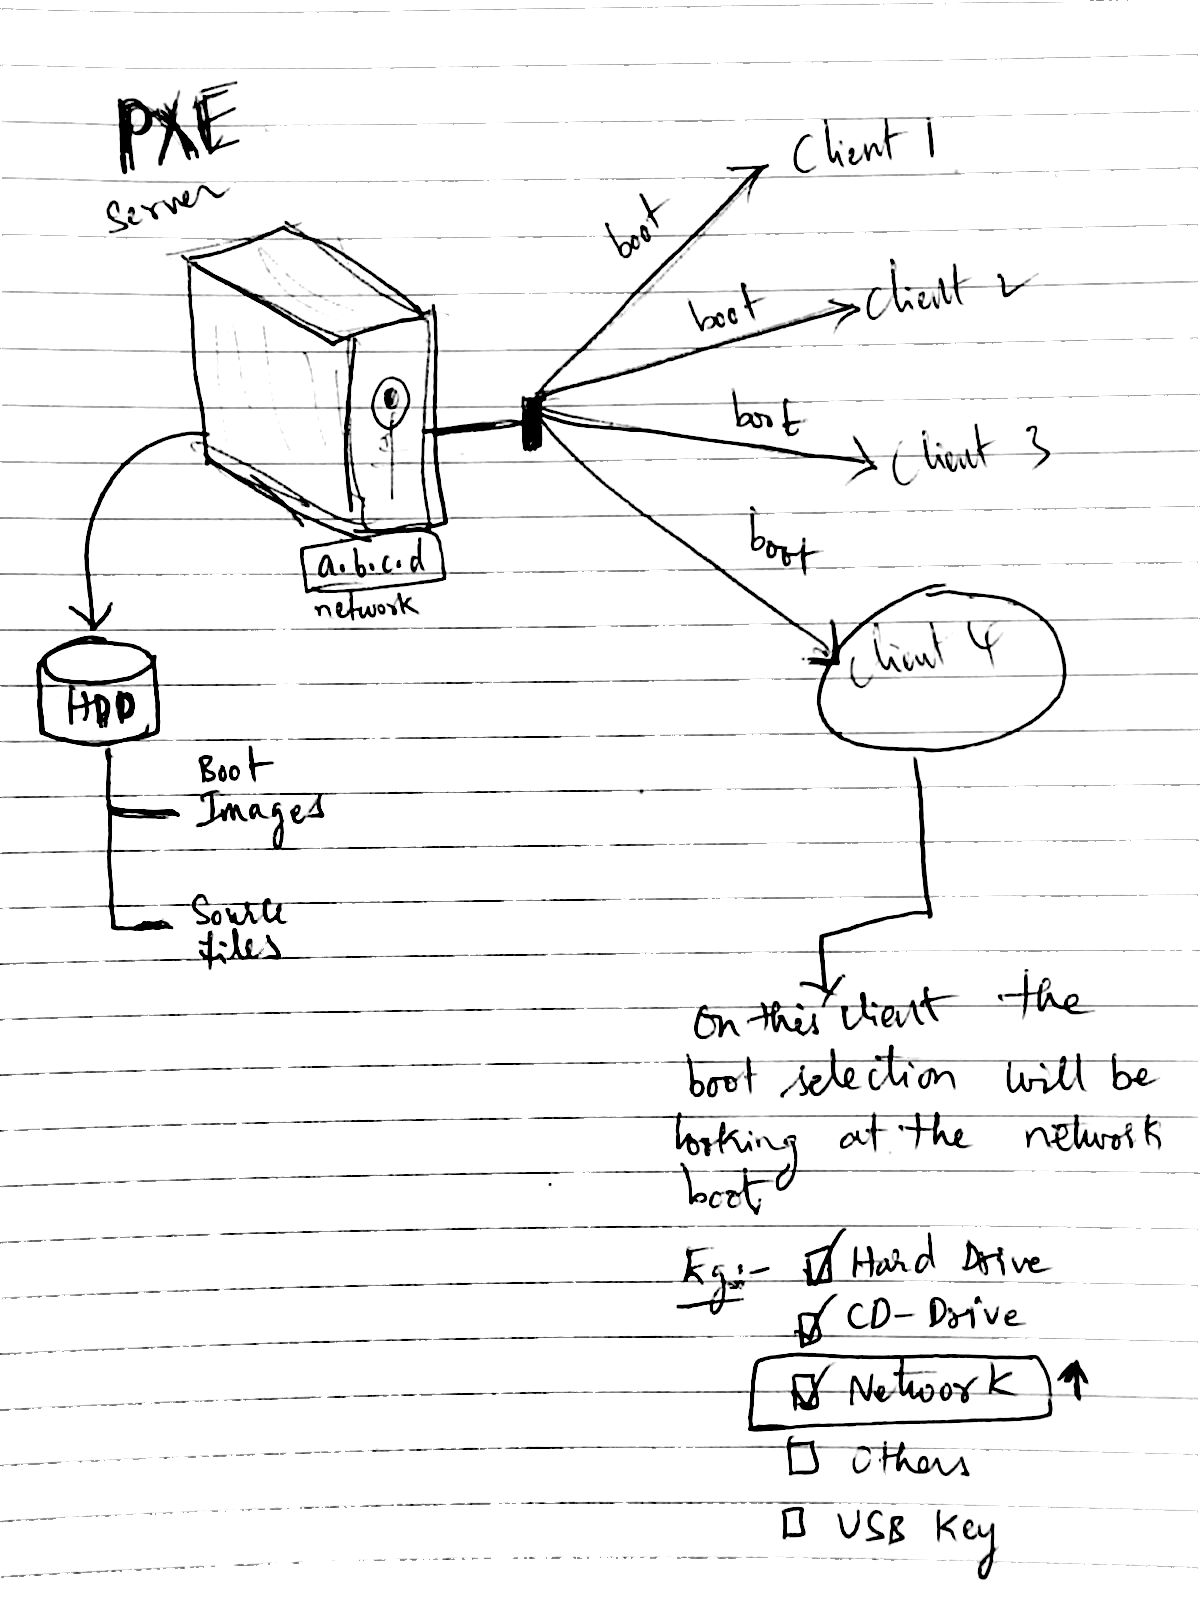 PXE
Server
boot
Client 1
boot
Client 2
boot
Client 3
boot
Client 4
a.b.c.d
network
HDD
Boot
Images
Source
files
On this client the
boot selection will be
looking at the network
boot
Eg:- Hard Drive
CD-Drive
Network
Others
USB Key